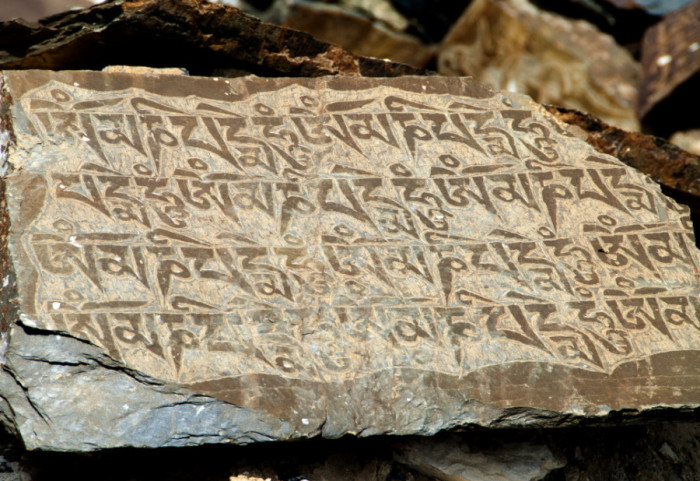 ཨོཾ་མ་ཎི་པདྨེ་ཧཱུྃ་ཨོཾ་མ་ཎི་པདྨེ་ཧཱུྃ
པདྨེ་ཧཱུྃ་ཨོཾ་མ་ཎི་པདྨེ་ཧཱུྃ་ཨོཾ་མ་ཎི་པདྨེ
ཨོཾ་མ་ཎི་པདྨེ་ཧཱུྃ་ཨོཾ་མ་ཎི་པདྨེ་ཧཱུྃ་ཨོཾ་མ
ཨོཾ་མ་ཎི་པདྨེ་ཧཱུྃ་ཨོཾ་མ་ཎི་པདྨེ་ཧཱུྃ་ཨོཾ་མ